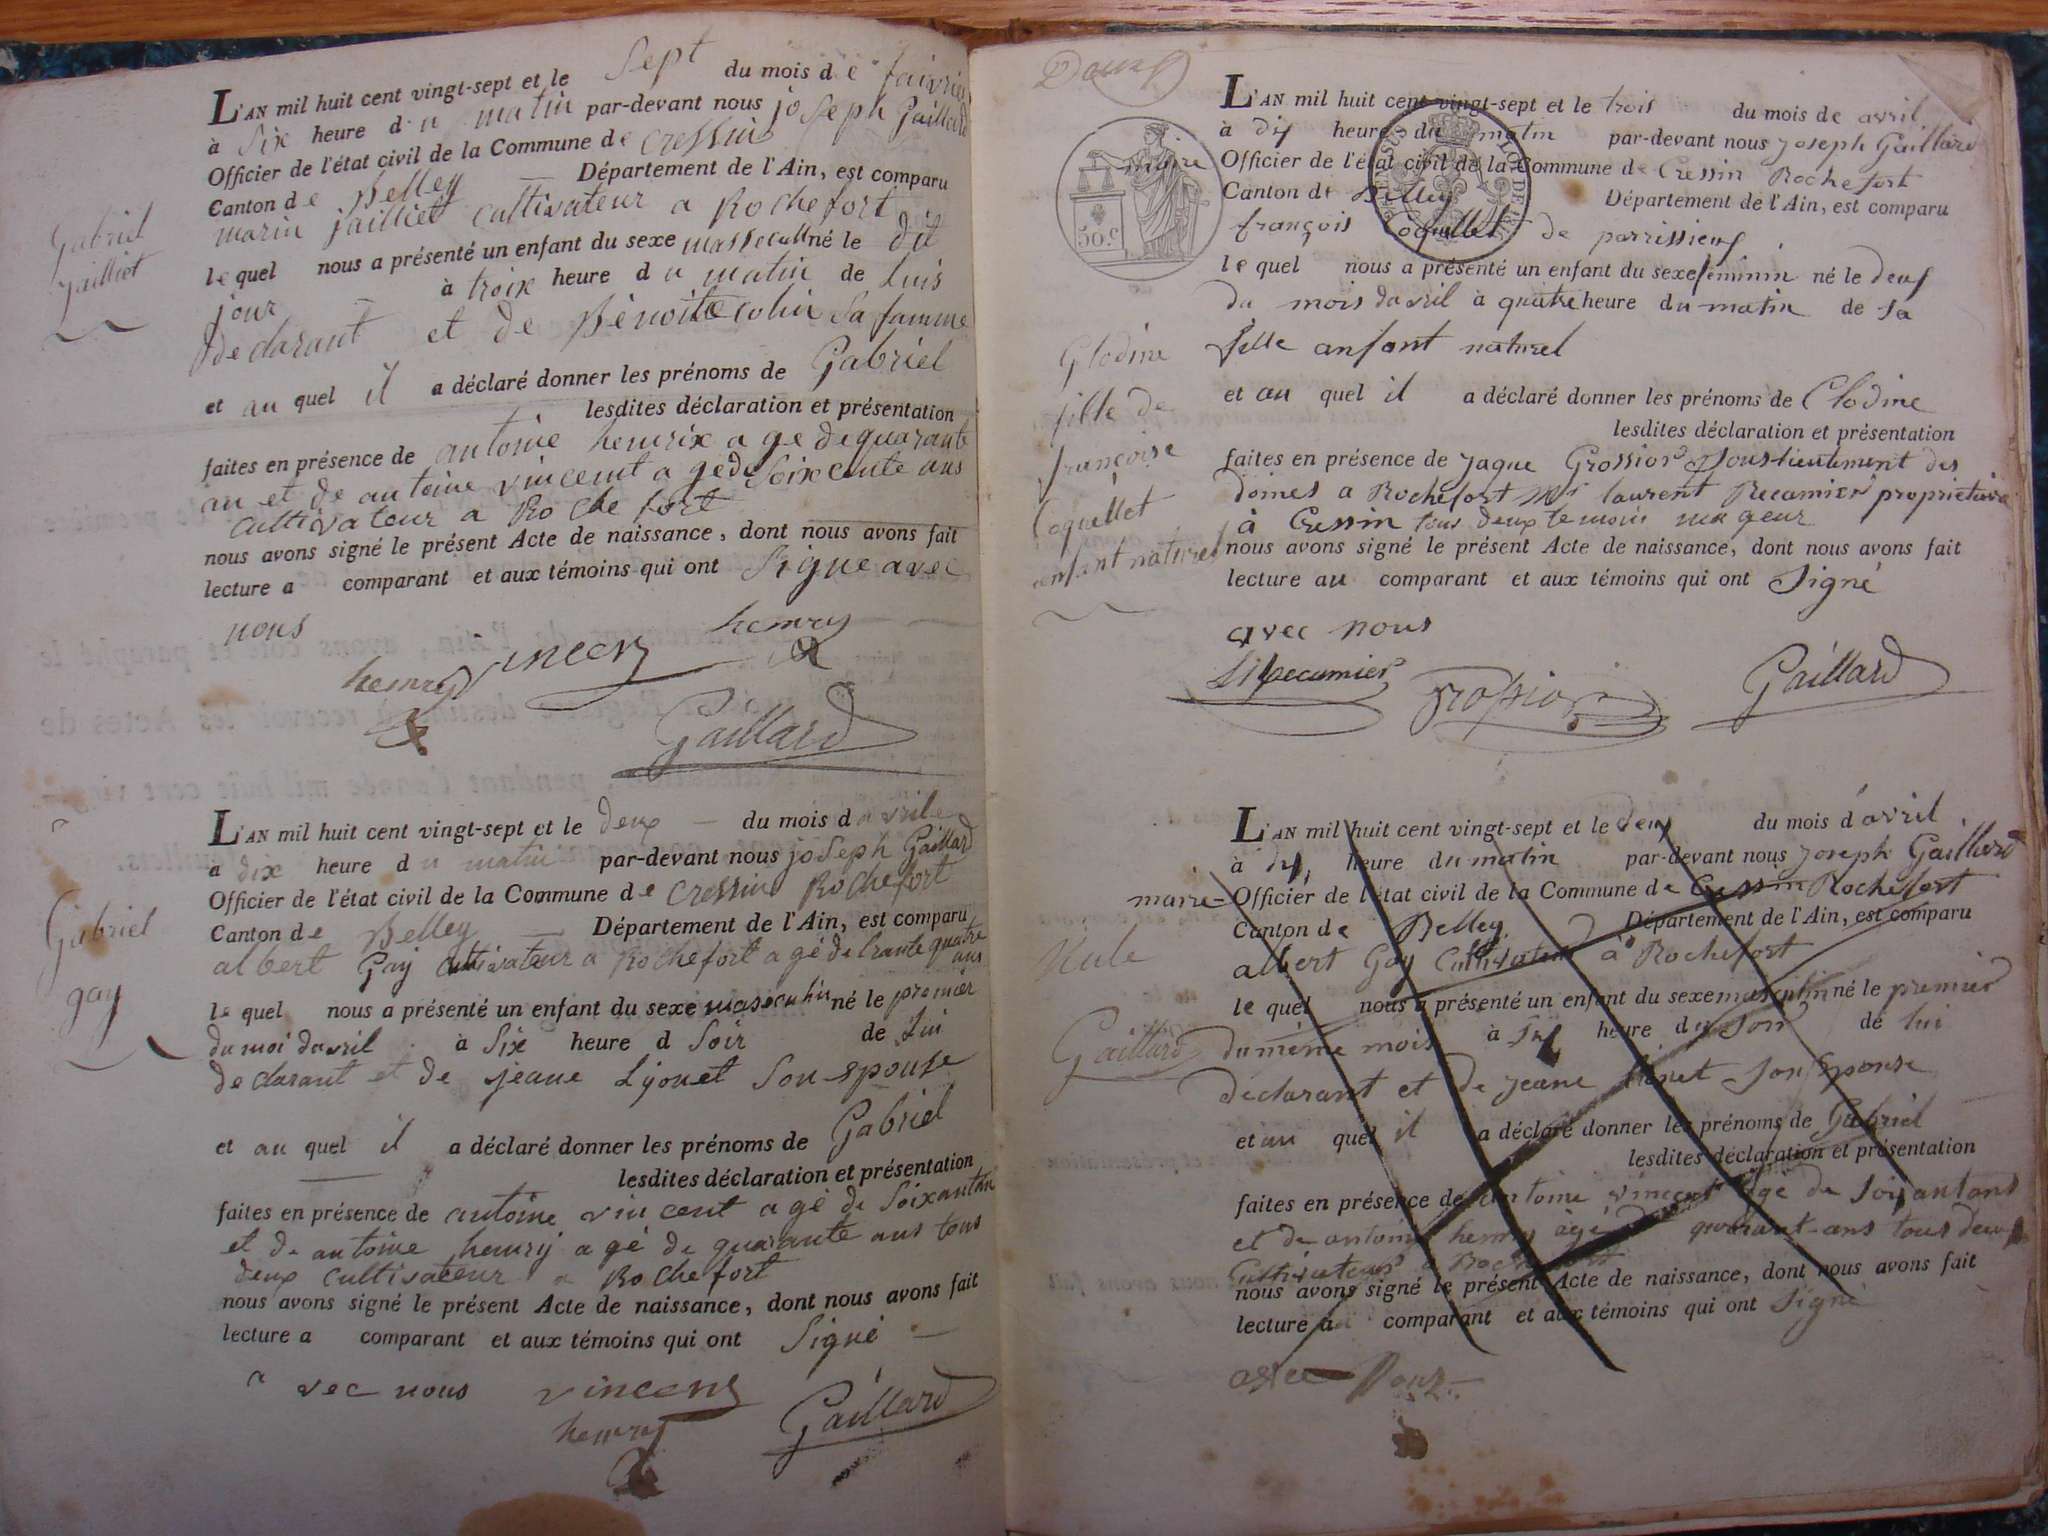 L'AN mil huit cent vingt-sept et le Sept du mois de faivrier
à Six heure du matin par-devant nous joseph Gaillard
Officier de l'état civil de la Commune de Cressin
Canton de Belley — Département de l'Ain, est comparu
marin jailliet cultivateur a Rochefort
Gabriel
jailliet
le quel nous a présenté un enfant du sexe massecull né le dit
jour — à troix heure du matin de Luis
declarant et de Benoite colin Sa famme
et au quel il a déclaré donner les prénoms de Gabriel
lesdites déclaration et présentation
faites en présence de antoine henrix a ge de quarante
an et de antoine vincent a gede Soixcente ans
cultivateur a Rochefort
nous avons signé le présent Acte de naissance, dont nous avons fait
lecture a comparant et aux témoins qui ont Signe avec
nous
henry
henry vincent
Gaillard
L'AN mil huit cent vingt-sept et le deux — du mois d avrile
a dix heure du matin par-devant nous joseph Gaillard
Officier de l'état civil de la Commune de Cressin Rochefort
Canton de Belley — Département de l'Ain, est comparu
albert Gay cultivateur a Rochefort a gé de trante quatre
ans
Gabriel
gay
le quel nous a présenté un enfant du sexe masculin né le premier
du moi davril à Six heure d Soir de Lui
declarant et de jeane Lyonet Son epouse
et au quel il a déclaré donner les prénoms de Gabriel
lesdites déclaration et présentation
faites en présence de antoine vincent a gé de Soixantan
et de antoine henry a gé de quarante ans tous
deux cultivateur a Rochefort
nous avons signé le présent Acte de naissance, dont nous avons fait
lecture a comparant et aux témoins qui ont Signé —
avec nous vincent
henry Gaillard
Douz
L'AN mil huit cent vingt-sept et le trois du mois de avril
à dix heure du matin par-devant nous Joseph Gaillard
maire Officier de l'état civil de la Commune de Cressin Rochefort
Canton de Belley Département de l'Ain, est comparu
françois Coquillet de parrissieux
50.c
le quel nous a présenté un enfant du sexe feminin né le deux
du mois davril à quatre heure du matin de sa
fille anfant naturel
Glodine
fille de
françoise
Coquellet
enfant naturel
et au quel il a déclaré donner les prénoms de Clodine
lesdites déclaration et présentation
faites en présence de jaque Grossior Souslieutement des
doines a Rochefort Mr laurent Recamier proprietaire
à Cressin tous deux temoin mageur
nous avons signé le présent Acte de naissance, dont nous avons fait
lecture au comparant et aux témoins qui ont Signé
avec nous
L Recamier Grossior Gaillard
L'AN mil huit cent vingt-sept et le deux du mois d'avril
à dix heure du matin par-devant nous Joseph Gaillard
maire Officier de l'état civil de la Commune de Cressin Rochefort
Canton de Belley Département de l'Ain, est comparu
albert Gay Cultivateur à Rochefort
Nule
Gaillard
le quel nous a présenté un enfant du sexe masculin né le premier
du même mois à Six heure du Soir de lui
declarant et de jeane lionet Son Eponse
et au quel il a déclaré donner les prénoms de Gabriel
lesdites déclaration et présentation
faites en présence de antoine vincent agé de soixantans
et de antoine henry âgé de quarant ans tous deux
Cultivateur à Rochefort
nous avons signé le présent Acte de naissance, dont nous avons fait
lecture au comparant et aux témoins qui ont Signé
avec Nous